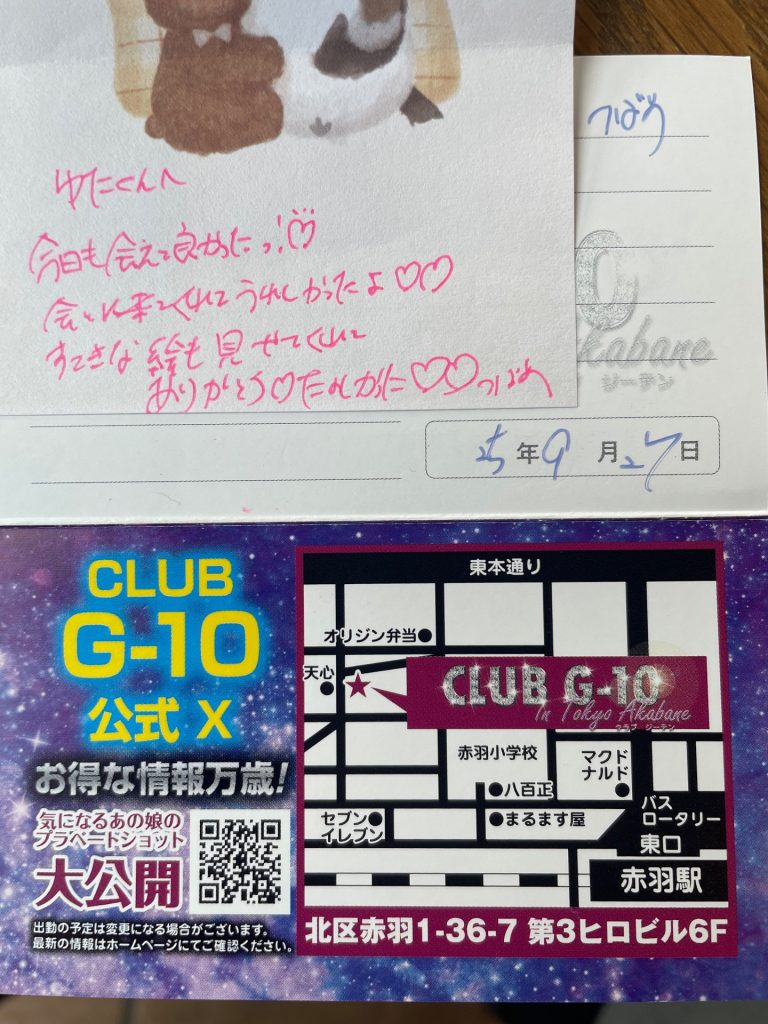 ゆたくんへ
今日も会えて良かったっ!♡
会いに来てくれてうれしかったよ♡♡
すてきな絵も見せてくれて
ありがとう♡たのしかった♡♡つばめ
つばめ
Akabane
ジーテン
25年9月27日
CLUB
G-10
公式 X
お得な情報万歳!
気になるあの娘の
プラベートショット
大公開
出勤の予定は変更になる場合がございます。
最新の情報はホームページにてご確認ください。
東本通り
オリジン弁当
天心
CLUB G-10
In Tokyo Akabane
クラブ ジーテン
赤羽小学校
マクド
ナルド
八百正
セブン
イレブン
まるます屋
バス
ロータリー
東口
赤羽駅
北区赤羽1-36-7 第3ヒロビル6F